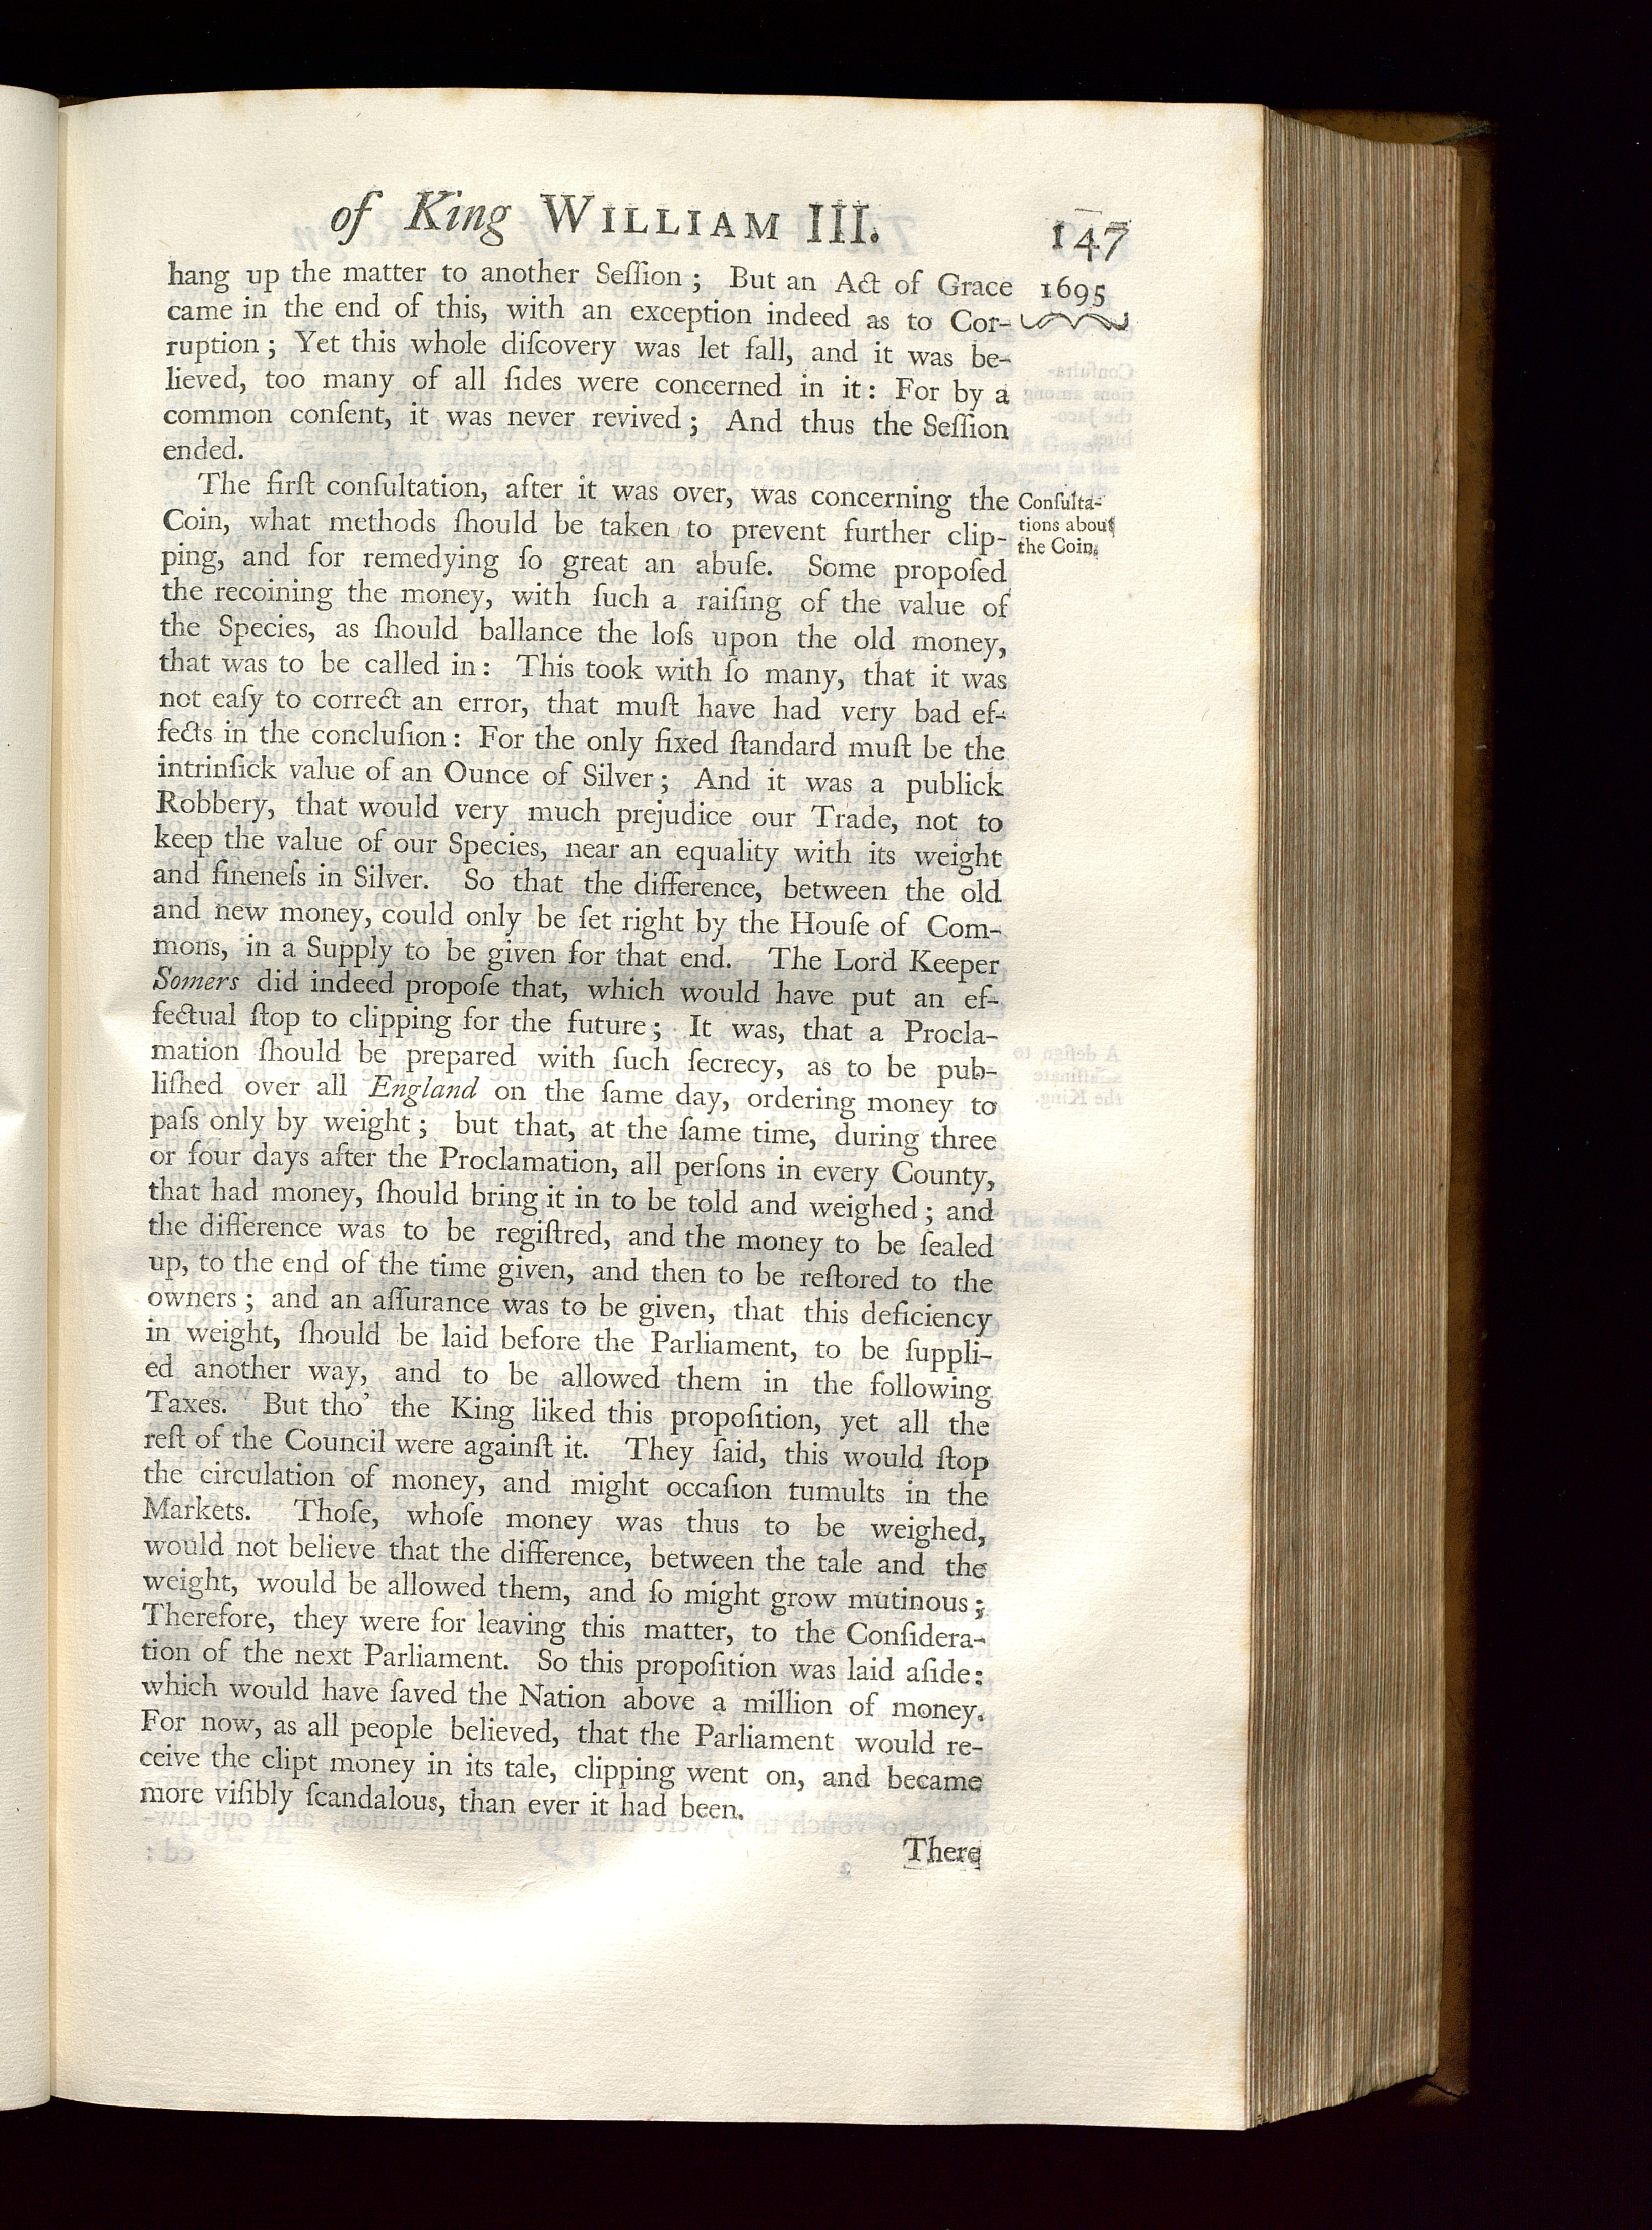 of King WILLIAM III.
147
hang up the matter to another Seſſion; But an Act of Grace
1695
came in the end of this, with an exception indeed as to Cor-
ruption; Yet this whole diſcovery was let fall, and it was be-
lieved, too many of all ſides were concerned in it: For by a
common conſent, it was never revived; And thus the Seſſion
ended.
The firſt conſultation, after it was over, was concerning the
Coin, what methods ſhould be taken to prevent further clip-
ping, and for remedying ſo great an abuſe. Some propoſed
the recoining the money, with ſuch a raiſing of the value of
the Species, as ſhould ballance the loſs upon the old money,
that was to be called in: This took with ſo many, that it was
not eaſy to correct an error, that muſt have had very bad ef-
fects in the concluſion: For the only fixed ſtandard muſt be the
intrinſick value of an Ounce of Silver; And it was a publick
Robbery, that would very much prejudice our Trade, not to
keep the value of our Species, near an equality with its weight
and fineneſs in Silver. So that the difference, between the old
and new money, could only be ſet right by the Houſe of Com-
mons, in a Supply to be given for that end. The Lord Keeper
Somers did indeed propoſe that, which would have put an ef-
fectual ſtop to clipping for the future; It was, that a Procla-
mation ſhould be prepared with ſuch ſecrecy, as to be pub-
liſhed over all England on the ſame day, ordering money to
paſs only by weight; but that, at the ſame time, during three
or four days after the Proclamation, all perſons in every County,
that had money, ſhould bring it in to be told and weighed; and
the difference was to be regiſtred, and the money to be ſealed
up, to the end of the time given, and then to be reſtored to the
owners; and an aſſurance was to be given, that this deficiency
in weight, ſhould be laid before the Parliament, to be ſuppli-
ed another way, and to be allowed them in the following
Taxes. But tho' the King liked this propoſition, yet all the
reſt of the Council were againſt it. They ſaid, this would ſtop
the circulation of money, and might occaſion tumults in the
Markets. Thoſe, whoſe money was thus to be weighed,
would not believe that the difference, between the tale and the
weight, would be allowed them, and ſo might grow mutinous;
Therefore, they were for leaving this matter, to the Conſidera-
tion of the next Parliament. So this propoſition was laid aſide:
which would have ſaved the Nation above a million of money.
For now, as all people believed, that the Parliament would re-
ceive the clipt money in its tale, clipping went on, and became
more viſibly ſcandalous, than ever it had been.
There
Conſulta-
tions about
the Coin.